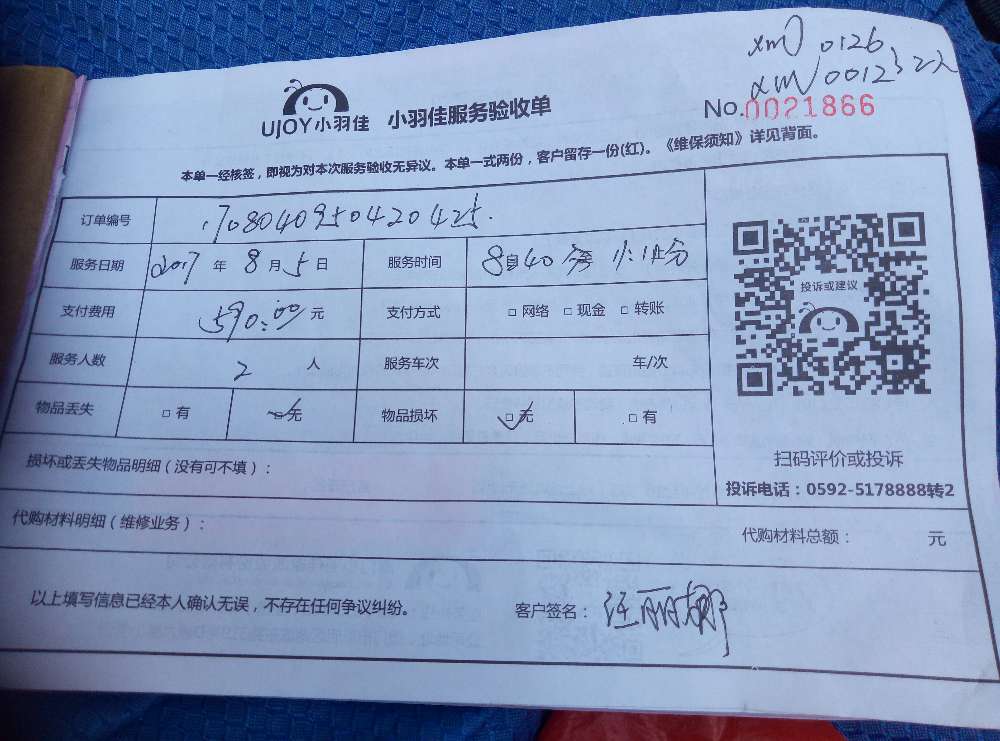 xm 0126
xm 00123 2人
UJOY小羽佳 小羽佳服务验收单 No.0021866
本单一经核签，即视为对本次服务验收无异议。本单一式两份，客户留存一份(红)。《维保须知》详见背面。
订单编号 1708040950420425
服务日期 2017 年 8 月 5 日 服务时间 8
支付费用 590.00 元 支付方式 □ 网络 □ 现金 □ 转账
投诉或建议
服务人数 2 人 服务车次 车/次
物品丢失 □ 有 □ 无 物品损坏 □ 无 □ 有
损坏或丢失物品明细（没有可不填）：
扫码评价或投诉
投诉电话：0592-5178888转2
代购材料明细（维修业务）： 代购材料总额： 元
以上填写信息已经本人确认无误，不存在任何争议纠纷。 客户签名：汪丽娜